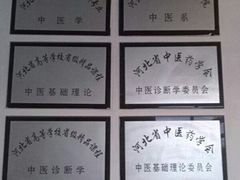 中医学
中医系
河北省高等学校省级精品课程
中医基础理论
河北省中医药学会
中医诊断学委员会
河北省高等学校省级精品课程
中医诊断学
河北省中医药学会
中医基础理论委员会